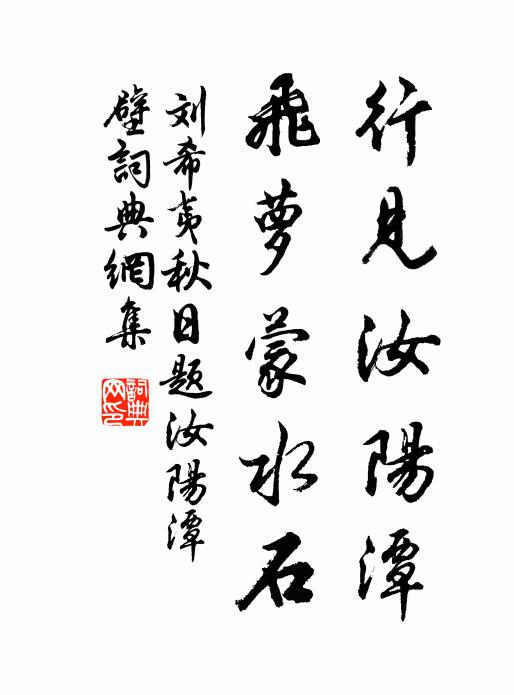 行見汝陽潭
飛夢蒙水石
刘希夷秋日题汝陽潭
壁詞典網集
詞典
网印